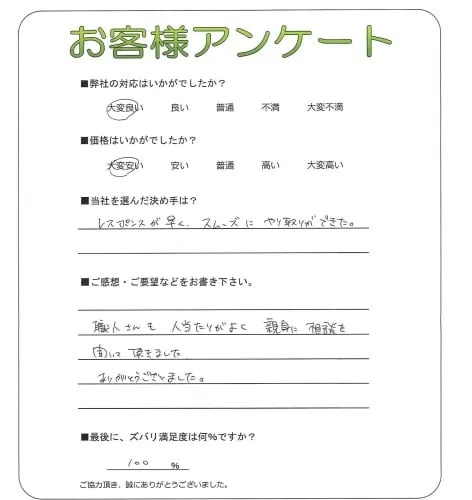 お客様アンケート
■弊社の対応はいかがでしたか？
大変良い 良い 普通 不満 大変不満
■価格はいかがでしたか？
大変安い 安い 普通 高い 大変高い
■当社を選んだ決め手は？
レスポンスが早く、スムーズに やり取りができた。
■ご感想・ご要望などをお書き下さい。
職人さんも 人当たりがよく 親身に 相談を
聞いて 頂きました
ありがとうございました。
■最後に、ズバリ満足度は何％ですか？
100 ％
ご協力頂き、誠にありがとうございました。